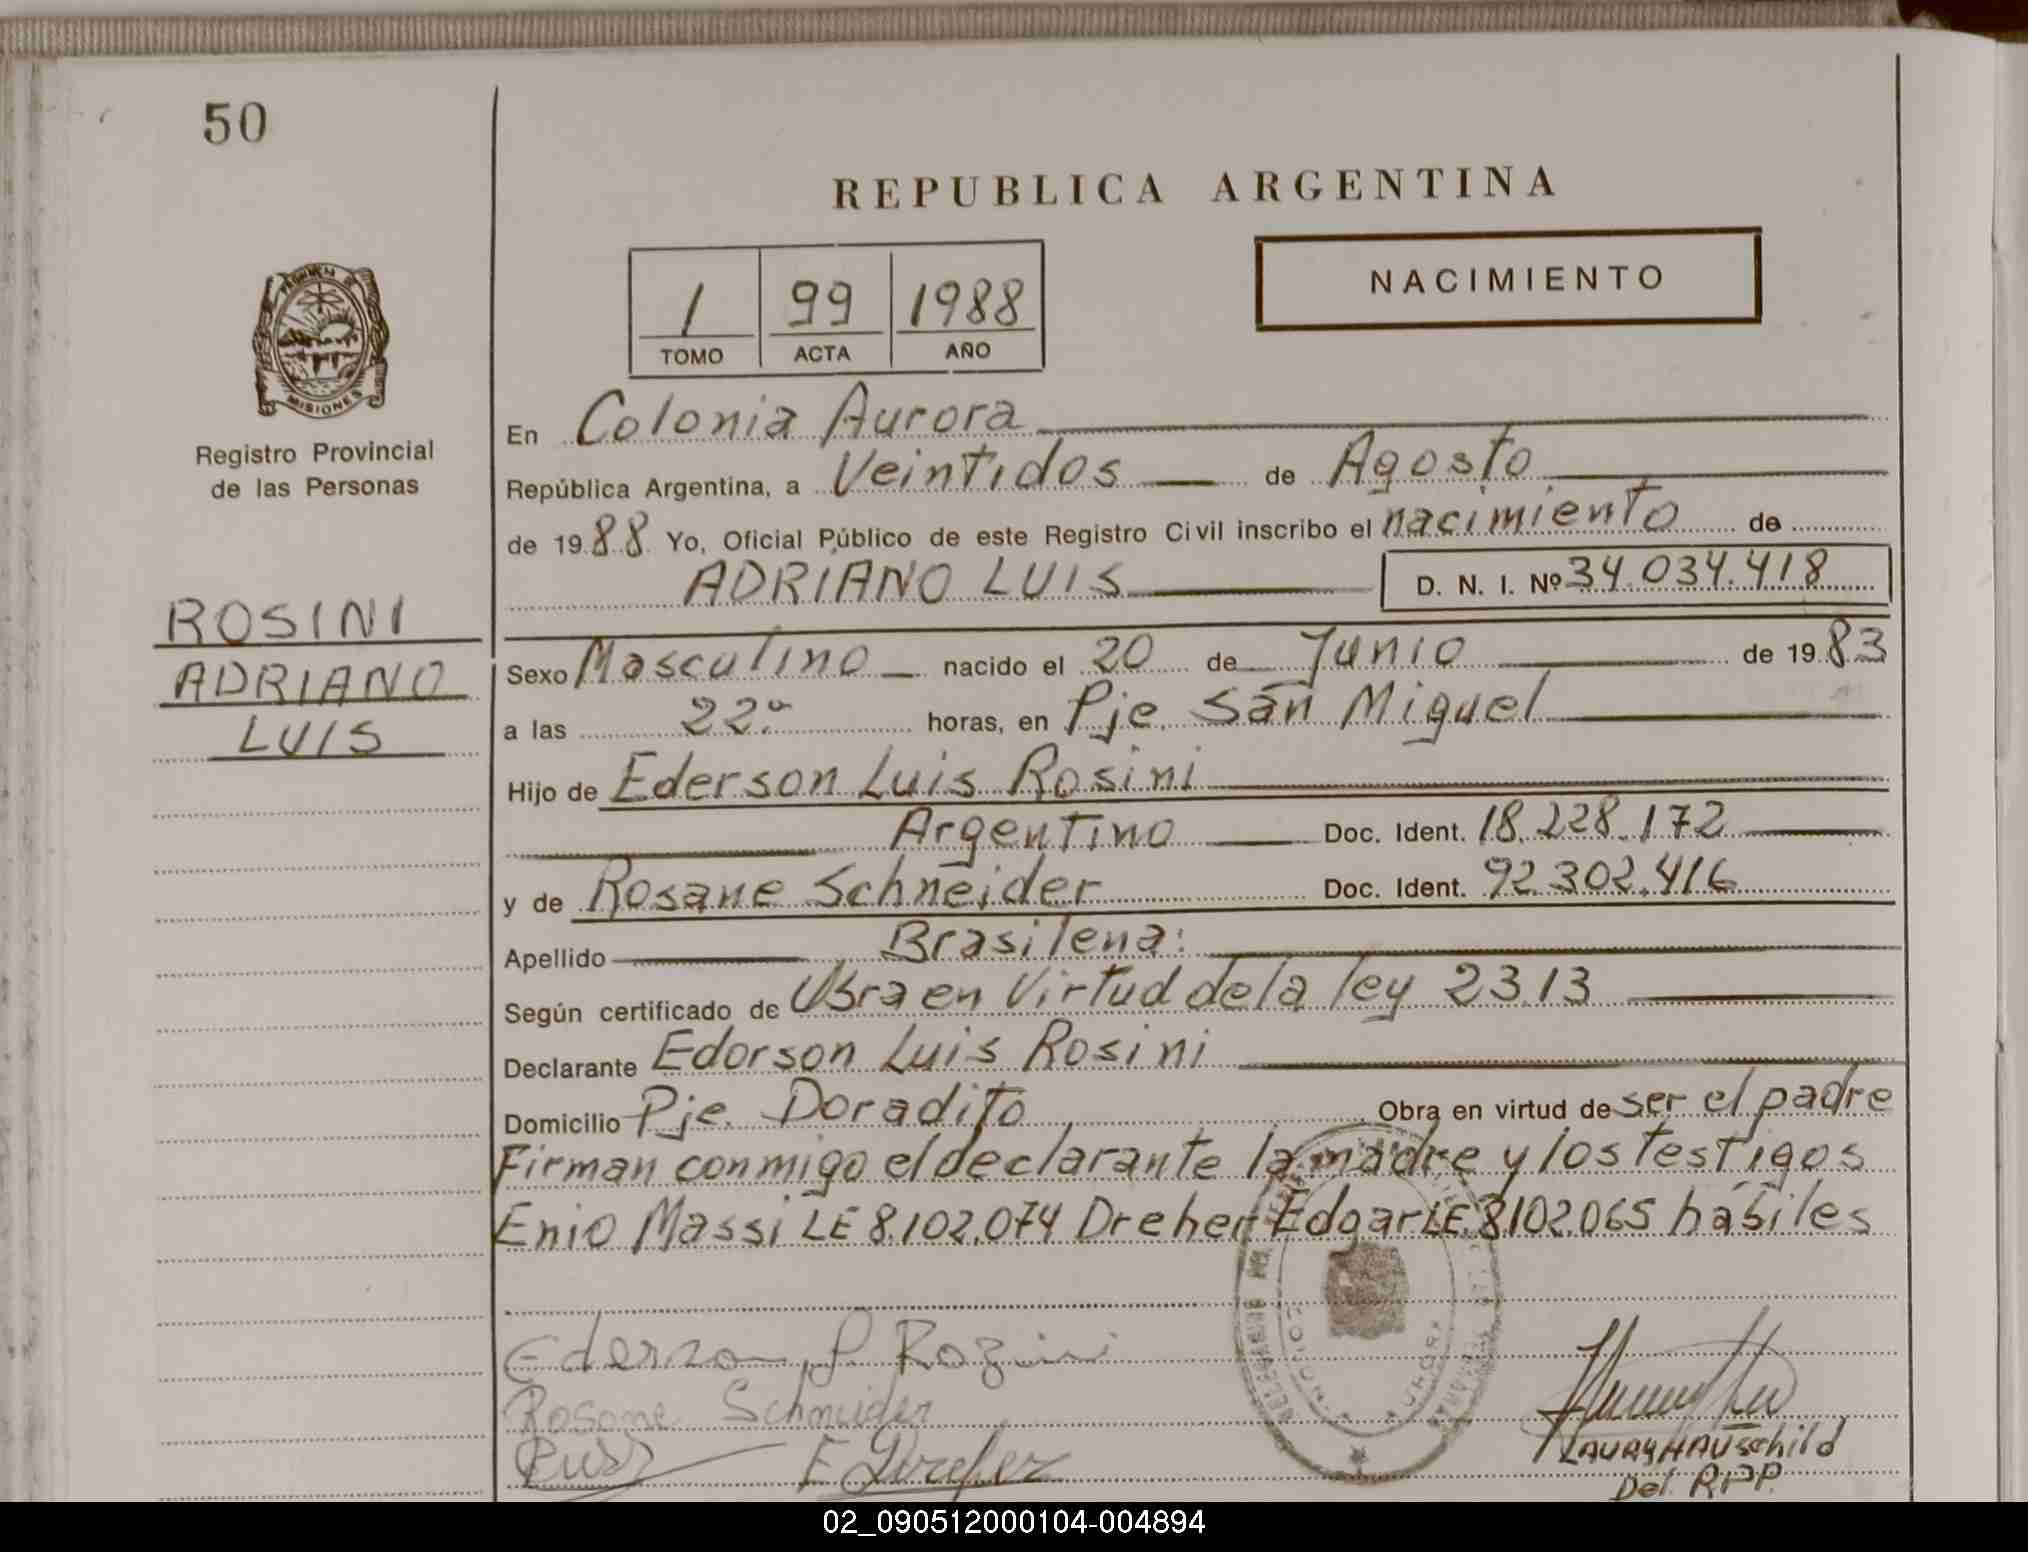 50
REPUBLICA ARGENTINA
NACIMIENTO
1 99 1988
TOMO ACTA AÑO
MISIONES
Registro Provincial
de las Personas
ROSINI
ADRIANO
LUIS
En Colonia Aurora
República Argentina, a Veintidos de Agosto
de 1988 Yo, Oficial Público de este Registro Civil inscribo el nacimiento de
ADRIANO LUIS D. N. I. Nº 34.034.418
Sexo Masculino nacido el 20 de Junio de 1983
a las 22º horas, en Pje. San Miguel
Hijo de Ederson Luis Rosini
Argentino Doc. Ident. 18.228.172
y de Rosane Schneider Doc. Ident. 92.302.416
Apellido Brasilena:
Según certificado de Obra en Virtud de la ley 23.13
Declarante Edorson Luis Rosini
Domicilio Pje. Doradito Obra en virtud de ser el padre
Firman conmigo el declarante la madre y los testigos
Enio Massi LE 8.102.074 Dreher Edgar LE 8.102.065 hábiles
Ederson L. Rozini
Rosane Schneider
E Dreher
HAUSchild
Del. RPP.
02_090512000104-004894